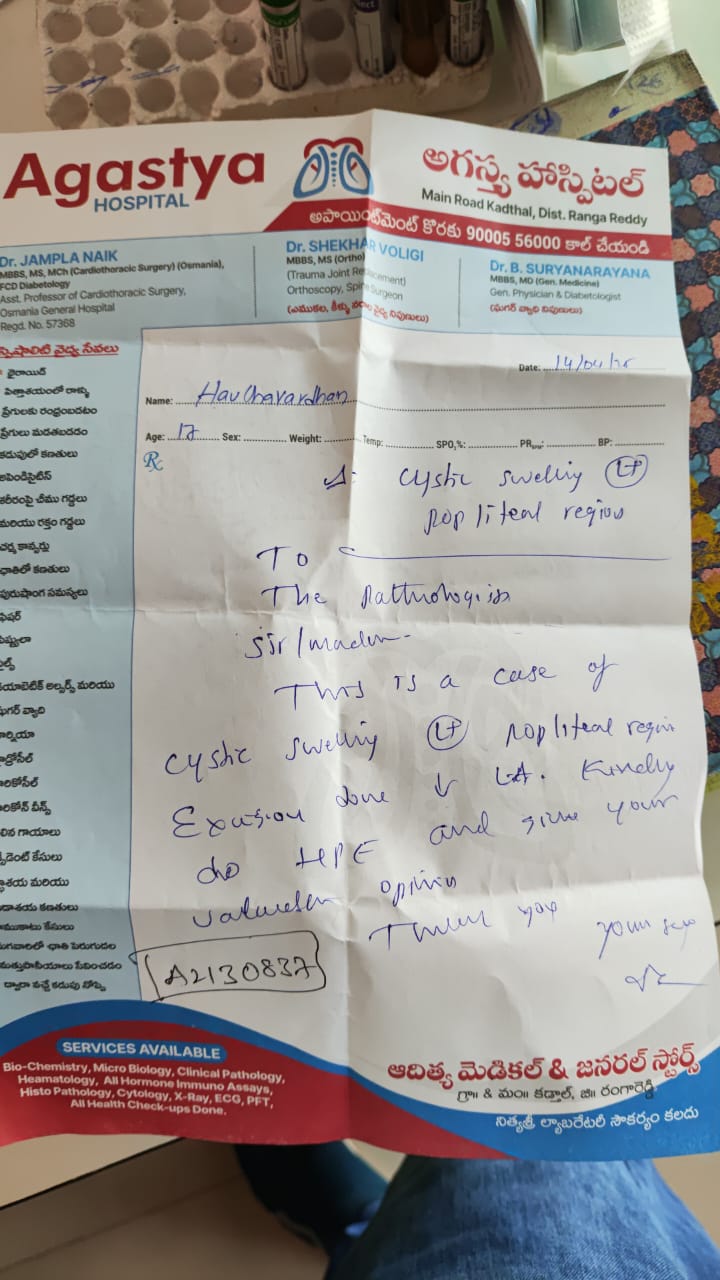 Agastya
HOSPITAL
అగస్త్య హాస్పిటల్
Main Road Kadthal, Dist. Ranga Reddy
అపాయింట్‌మెంట్ కొరకు 90005 56000 కాల్ చేయండి
Dr. JAMPLA NAIK
MBBS, MS, MCh (Cardiothoracic Surgery) (Osmania),
FCD Diabetology
Asst. Professor of Cardiothoracic Surgery,
Osmania General Hospital
Regd. No. 57368
Dr. SHEKHAR VOLIGI
MBBS, MS (Ortho)
(Trauma Joint Replacement)
Orthoscopy, Spine Surgeon
Dr. B. SURYANARAYANA
MBBS, MD (Gen. Medicine)
Gen. Physician & Diabetologist
(షుగర్ వ్యాధి నిపుణులు)
వైద్య సేవలు
థైరాయిడ్
పిత్తాశయంలో రాళ్ళు
ప్రేగులకు రంధ్రంబడటం
ప్రేగులు మడతబడడం
కడుపులో కణతులు
అపెండిసైటిస్
శరీరంపై చీము గడ్డలు
మరియు రక్తం గడ్డలు
చర్మ కాన్సర్లు
ఛాతిలో కణతులు
పురుషాంగ సమస్యలు
షుగర్ వ్యాధి
గాయాలు
కేసులు
మరియు
కణతులు
కేసులు
ద్వారా వచ్చే కడుపు నొప్పి
Date: 14/04/
Name:
Age: 17 Sex: Weight: Temp: SPO₂%: PR BP:
℞
Δ: cystic swelling Lt
popliteal region
To
The Pathologist
Sir/madam
This is a case of
cystic swelling Lt popliteal region
Excision done ↓ LA. Kindly
do HPE and give your
opinion
Thank you
A2130837
SERVICES AVAILABLE
Bio-Chemistry, Micro Biology, Clinical Pathology,
Heamatology, All Hormone Immuno Assays,
Histo Pathology, Cytology, X-Ray, ECG, PFT,
All Health Check-ups Done.
ఆదిత్య మెడికల్ & జనరల్ స్టోర్స్
గ్రా॥ & మం॥ కడ్తాల్, జి॥ రంగారెడ్డి
నిత్యశ్రీ ల్యాబరేటరీ సౌకర్యం కలదు